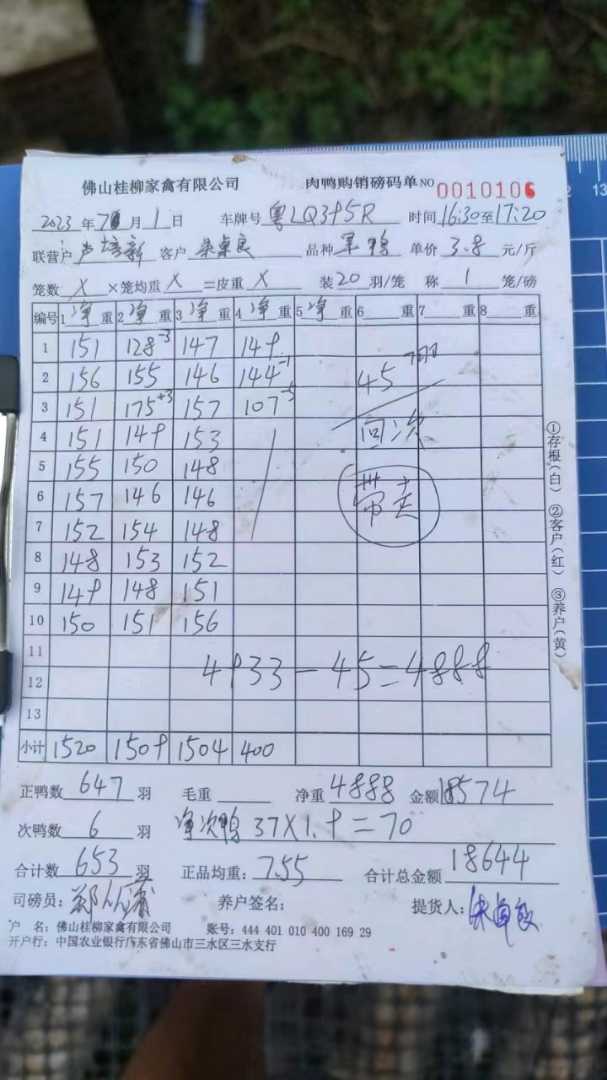 佛山桂柳家禽有限公司 肉鸭购销磅码单 NO 0010106
2023 年 7 月 1 日 车牌号 粤LQ395R 时间 16:30 至 17:20
联营户 卢培新 客户 品种 单价 3.8 元/斤
笼数 X ×笼均重 X =皮重 X 装 20 羽/笼 称 1 笼/磅
编号 1 净 重 2 净 重 3 净 重 4 净 重 5 净 重 6 重 7 重 8 重
1 151 128-3 147 149
2 156 155 146 144-1 45
3 151 175+3 157 107-5
4 151 149 153 回次
5 155 150 148
6 157 146 146 带走
7 152 154 148
8 148 153 152
9 149 148 151
10 150 151 156
11
4933-45=4888
12
13
小计 1520 1509 1504 400
正鸭数 647 羽 毛重 净重 4888 金额 18574
次鸭数 6 羽 净次鸭 37X1.9=70
合计数 653 羽 正品均重: 7.55 合计总金额 18644
司磅员: 养户签名: 提货人:
户 名: 佛山桂柳家禽有限公司 账号: 444 401 010 400 169 29
开户行: 中国农业银行广东省佛山市三水区三水支行
①存根(白) ②客户(红) ③养户(黄)
12 13